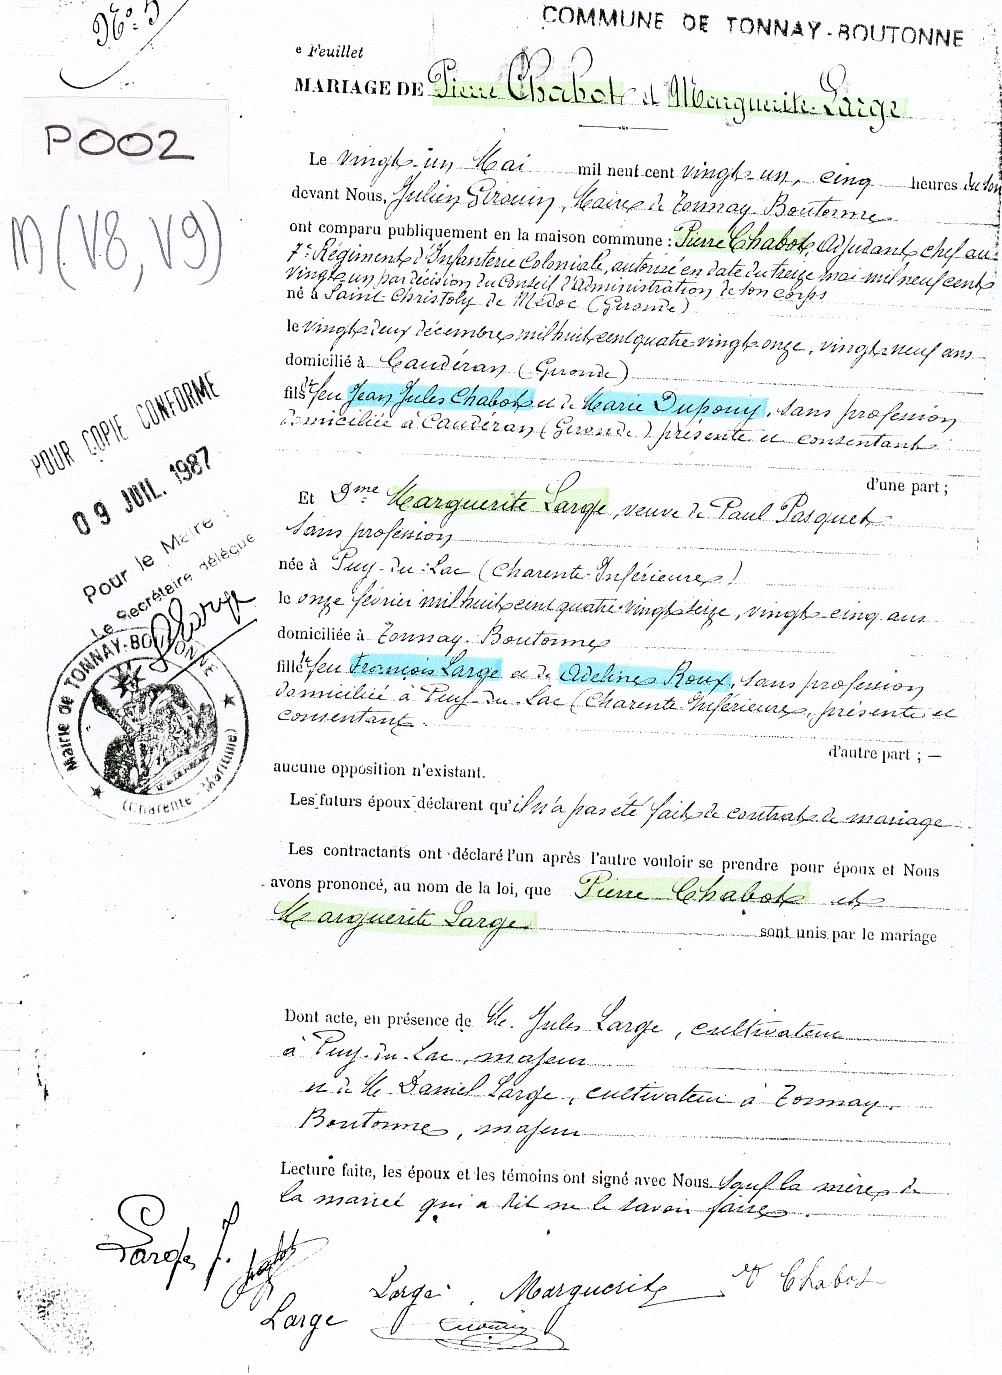 N° 5
COMMUNE DE TONNAY-BOUTONNE
e Feuillet
MARIAGE DE Pierre Chabot et Marguerite Large
P002
M(V8, V9)
Le vingt-un Mai mil neuf cent vingt-un, cinq heures du soir
devant Nous, Julien Girouin, Maire de Tonnay-Boutonne
ont comparu publiquement en la maison commune : Pierre Chabot, Adjudant chef au
7e Régiment d'Infanterie Coloniale, autorisé en date du treize mai mil neuf cent
vingt un par décision du Conseil d'Administration de son corps
né à Saint Christoly de Médoc (Gironde)
le vingt deux décembre mil huit cent quatre vingt onze, vingt neuf ans
domicilié à Caudéran (Gironde)
fils de feu Jean Jules Chabot et de Marie Dupouy, sans profession
domiciliée à Caudéran (Gironde) présente et consentant
d'une part ;
Et Dme Marguerite Large, veuve de Paul Pasquet
sans profession
née à Puy-du-Lac (Charente-Inférieure)
le onze février mil huit cent quatre vingt seize, vingt cinq ans
domiciliée à Tonnay-Boutonne
fille de feu François Large et de Adeline Roux, sans profession
domiciliée à Puy-du-Lac (Charente-Inférieure, présente et
consentant.
d'autre part ; —
aucune opposition n'existant.
Les futurs époux déclarent qu'il n'a pas été fait de contrat de mariage
Les contractants ont déclaré l'un après l'autre vouloir se prendre pour époux et Nous
avons prononcé, au nom de la loi, que Pierre Chabot et
Marguerite Large sont unis par le mariage
Dont acte, en présence de M. Jules Large, cultivateur
à Puy-du-Lac, majeur
et de M. Daniel Large, cultivateur à Tonnay-
Boutonne, majeur
Lecture faite, les époux et les témoins ont signé avec Nous sauf la mère de
la mariée qui a dit ne le savoir faire.
POUR COPIE CONFORME
09 JUIL. 1987
Pour le Maire :
Le Secrétaire délégué
Mairie de TONNAY-BOUTONNE
(Charente-Maritime)
Large J.
Large
Large Marguerite
Chabot